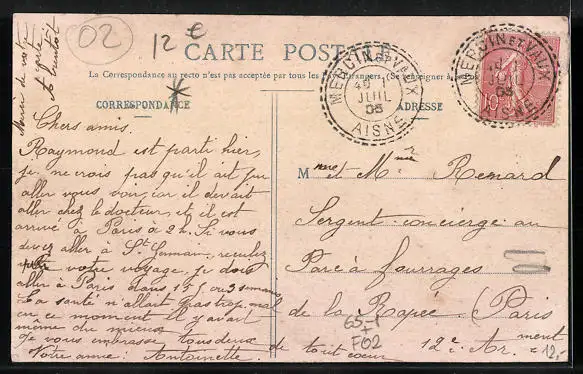 02
12 €
Merci de votre
carte
à bientôt
CARTE POSTALE
La Correspondance au recto n'est pas acceptée par tous les pays étrangers. (Se renseigner à la
CORRESPONDANCE
ADRESSE
MERCIN ET VAUX
JUIL
05
AISNE
MERCIN ET VAUX
05
AISNE
10
Chers amis.
Raymond est parti hier,
je ne crois pas qu'il ait pu
aller vous voir, car il devait
aller chez le docteur, et il est
arrivé à Paris à 2h. Si vous
devez aller à St Germain, reculez
votre voyage, je dois
aller à Paris dans 15j ou 3 semaines
La santé n'allait pas trop mal
en ce moment il y avait
même du mieux
Je vous embrasse tous deux de tout cœur
Votre amie: Antoinette
Mme et Mr Renard
Sergent concierge au
Parc à fourrages
de la Rapée (Paris
12e Arment
65-1
+
F02
12,-